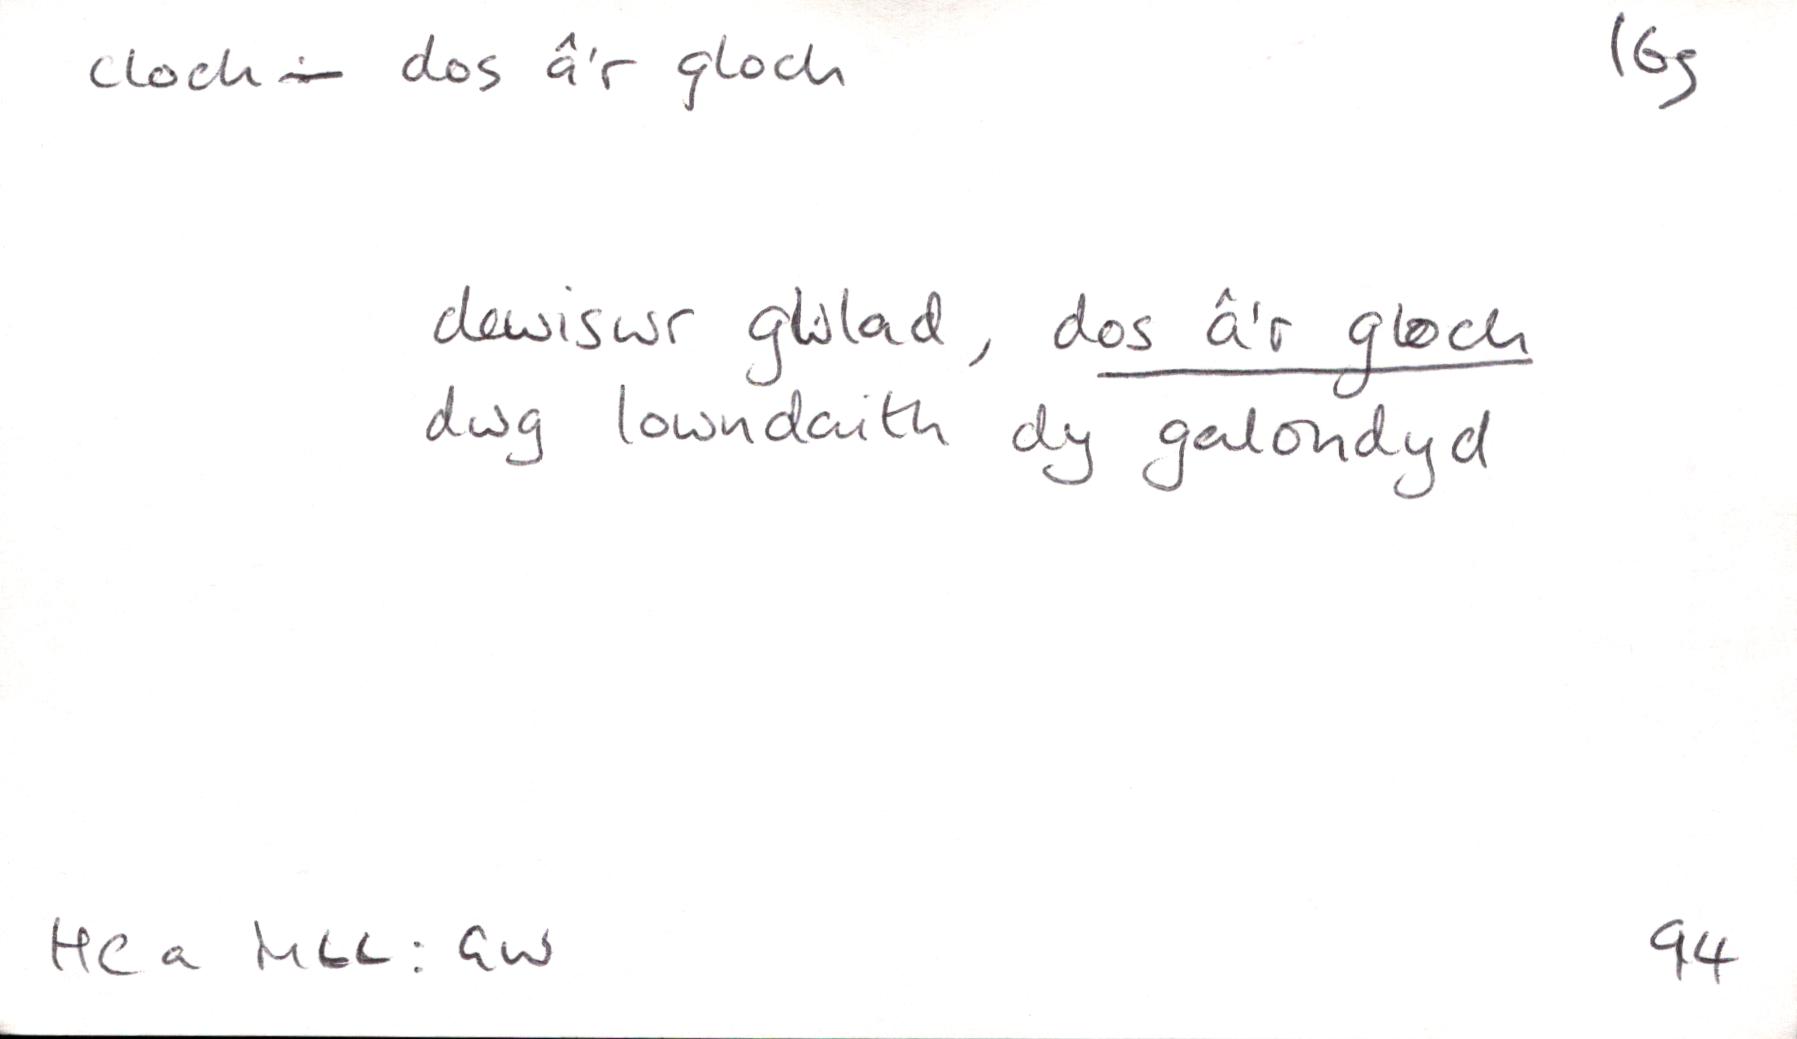 cloch — dos â'r gloch 16g
dewiswr gwlad, dos â'r gloch
dwg lowndaith dy galondyd
HC a MLL: GW 94